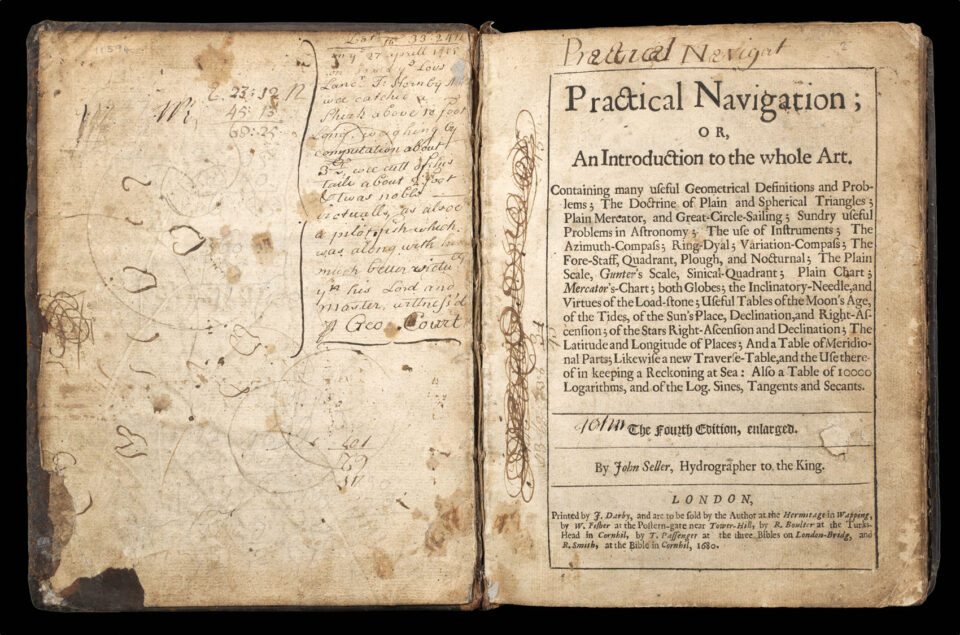 11594
Lat 33:24 N
27 Aprill
on board ye Lovs
Lanct. F: Hornby
wee catched a
Shark above 10 foot
Long: weaghing by
computation about
wee cutt of his
taile about 2 foot
& twas noble
victually as alsoe
a pilot fish which
was along with him
much better victu
yn his Lord and
Master, witness'd
Geo. Court
23:12 N
45:13
69:25
201
29
Practical Navigat
2
Practical Navigation;
OR,
An Introduction to the whole Art.
Containing many uſeful Geometrical Definitions and Prob-
lems; The Doctrine of Plain and Spherical Triangles;
Plain Mercator, and Great-Circle-Sailing; Sundry uſeful
Problems in Aſtronomy; The uſe of Inſtruments; The
Azimuth-Compaſs; Ring-Dyal; Variation-Compaſs; The
Fore-Staff, Quadrant, Plough, and Nocturnal; The Plain
Scale, Gunter's Scale, Sinical-Quadrant; Plain Chart;
Mercator's-Chart; both Globes; the Inclinatory-Needle, and
Virtues of the Load-ſtone; Uſeful Tables of the Moon's Age,
of the Tides, of the Sun's Place, Declination, and Right-Aſ-
cenſion; of the Stars Right-Aſcenſion and Declination; The
Latitude and Longitude of Places; And a Table of Meridio-
nal Parts; Likewiſe a new Traverſe-Table, and the Uſe there-
of in keeping a Reckoning at Sea: Alſo a Table of 10000
Logarithms, and of the Log. Sines, Tangents and Secants.
John
The Fourth Edition, enlarged.
By John Seller, Hydrographer to the King.
LONDON,
Printed by J. Darby, and are to be ſold by the Author at the Hermitage in Wapping,
by W. Fiſher at the Poſtern-gate near Tower-Hill, by R. Boulter at the Turks-
Head in Cornhil, by T. Paſſenger at the three Bibles on London-Bridg, and
R. Smith, at the Bible in Cornhil, 1680.